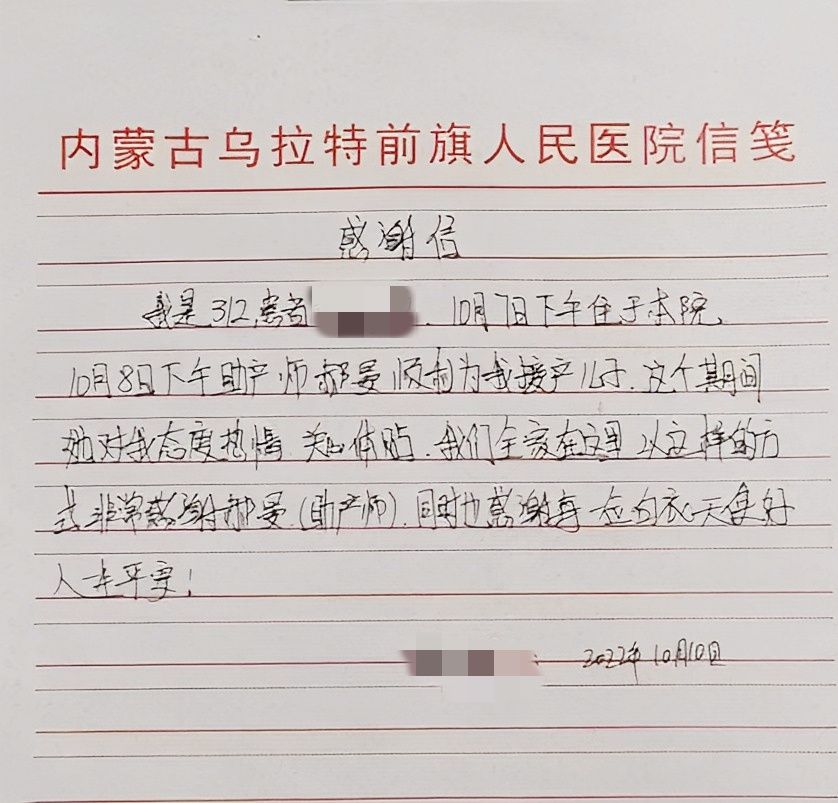 内蒙古乌拉特前旗人民医院信笺
感谢信
我是312患者 、10月7日下午住于本院、
10月8日下午助产师郝曼顺利为我接产儿子.这个期间
她对我态度热情 关心体贴.我们全家在这里以这样的方
式非常感谢郝曼(助产师).同时也感谢每一位白衣天使好
人一生平安!
2022年10月10日